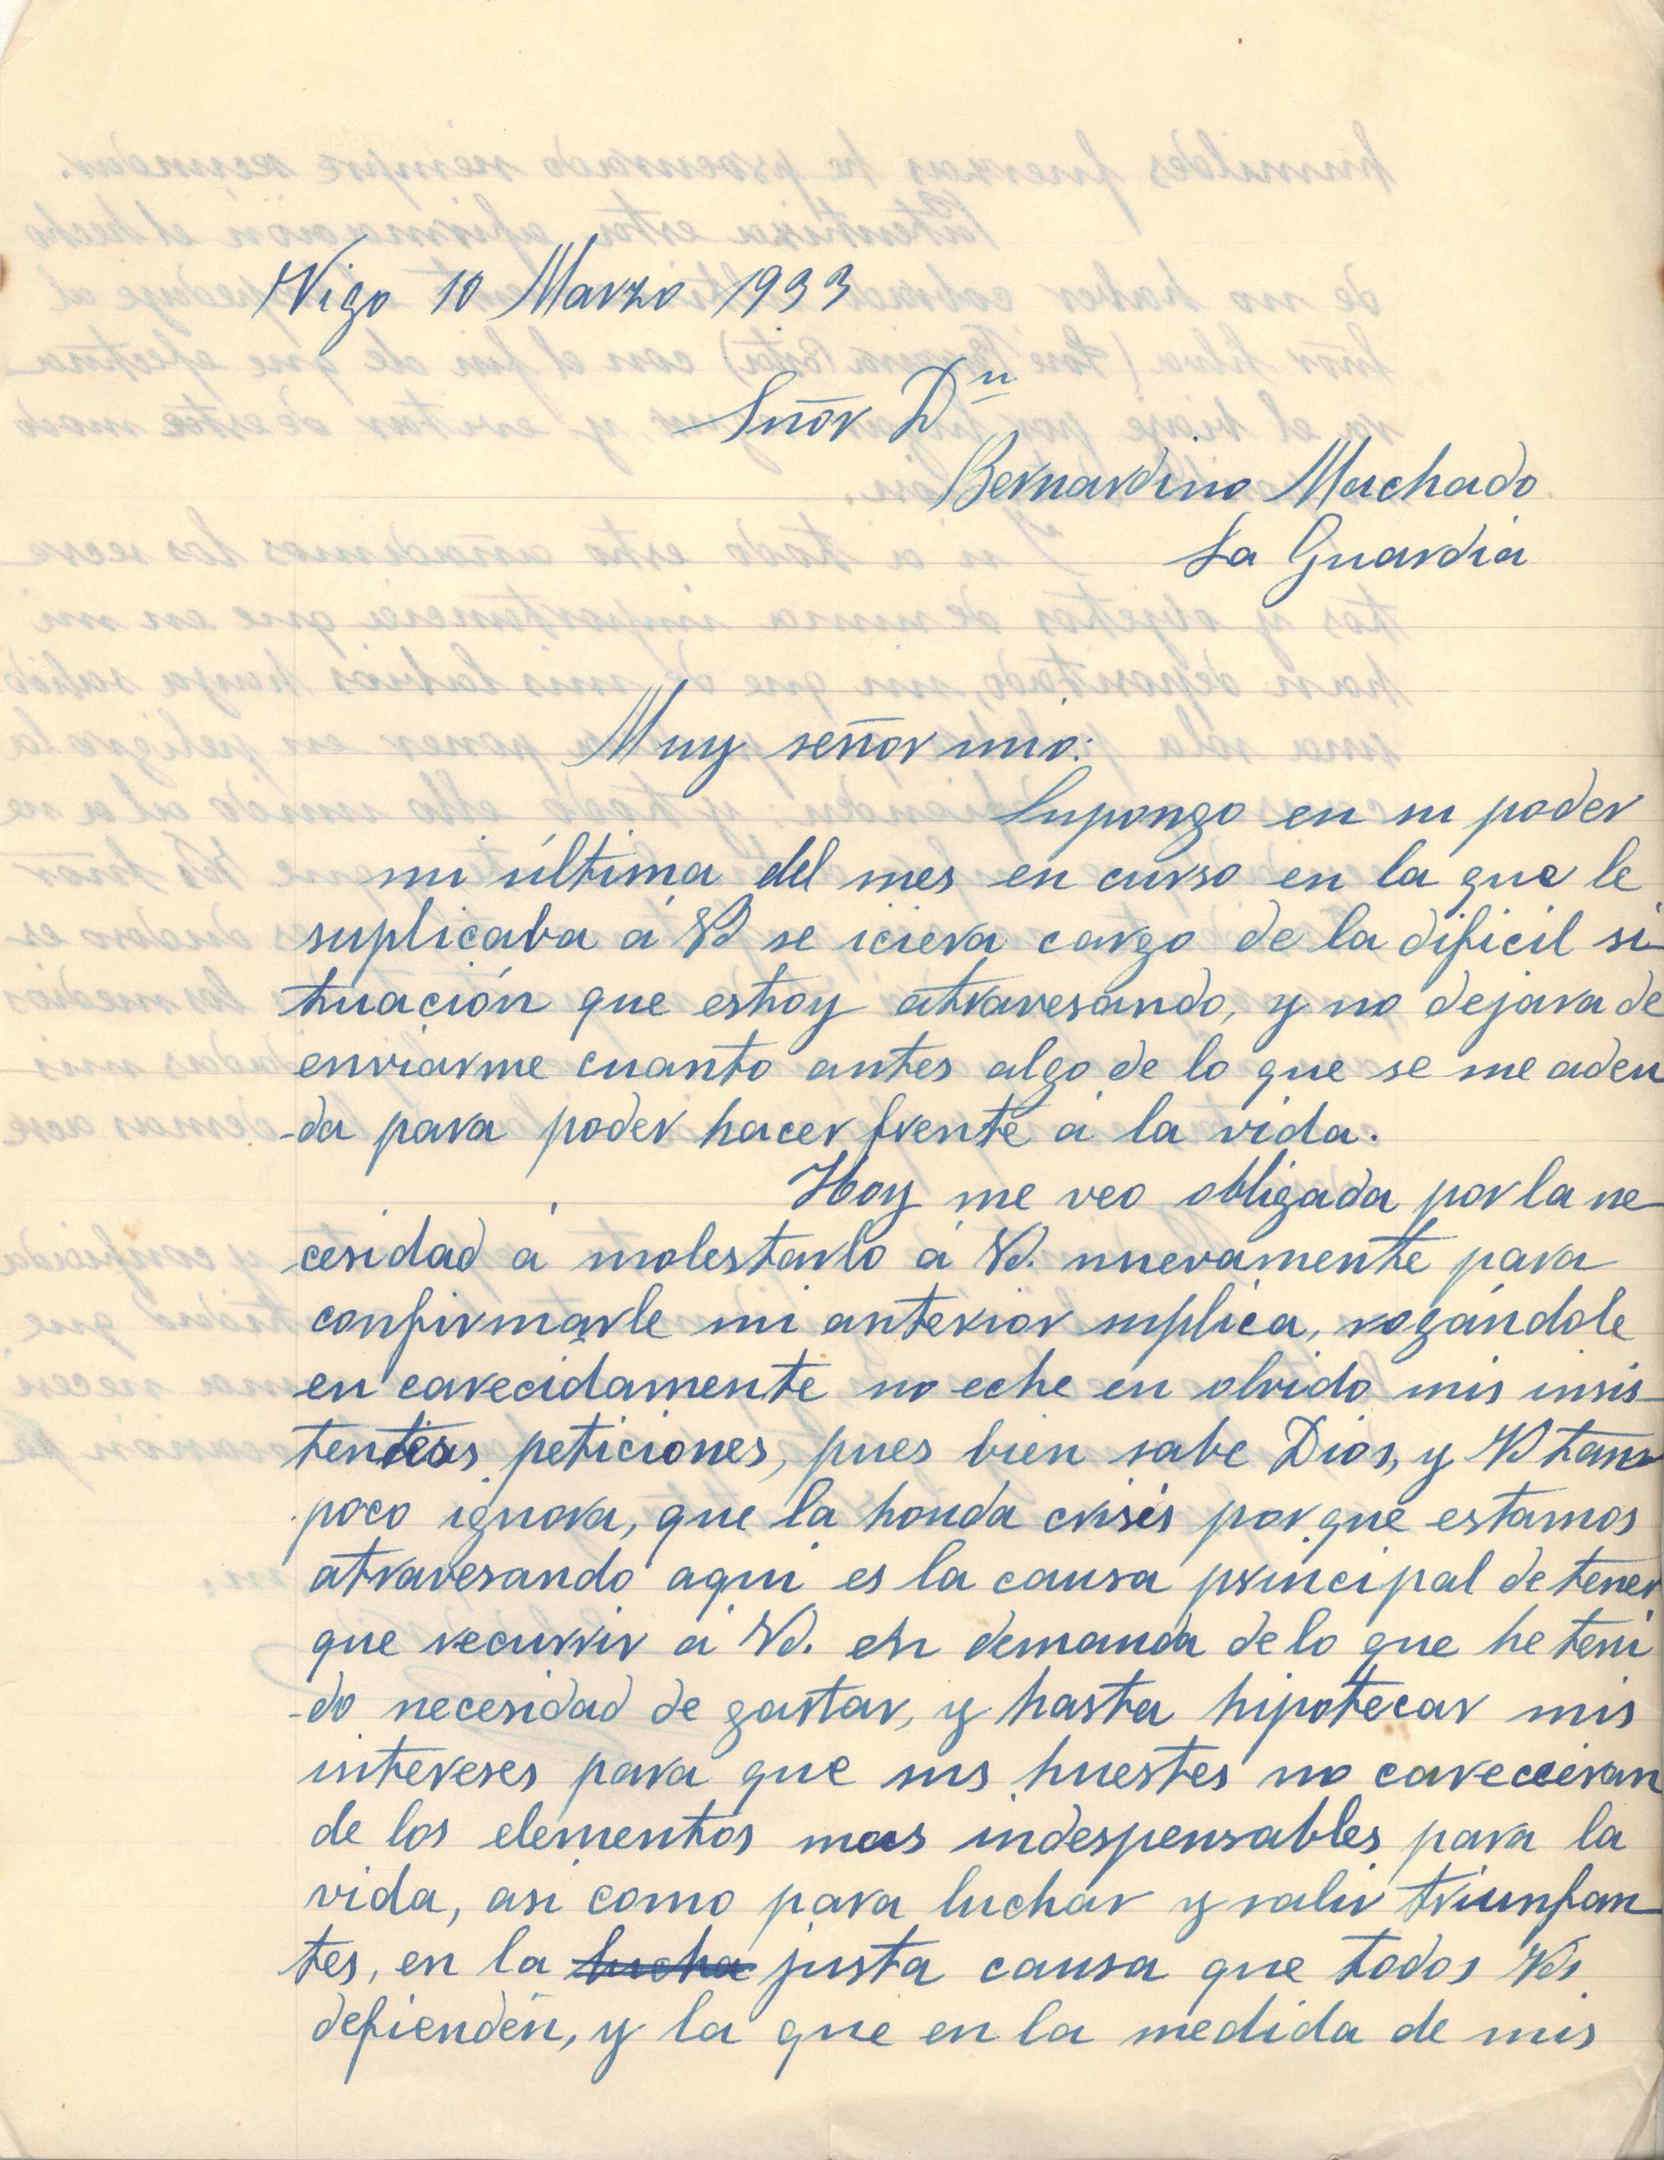 Vigo 10 Marzo 1933
Señor Dn
Bernardino Machado
La Guardia
Muy señor mio:
Supongo en su poder
mi última del mes en curso en la que le
suplicaba á Vd se iciera cargo de la dificil si
tuación que estoy atravesando, y no dejara de
enviarme cuanto antes algo de lo que se me adeu
-da para poder hacer frente á la vida.
Hoy me veo obligada por la ne
cesidad á molestarlo á Vd. nuevamente para
confirmarle mi anterior suplica, rogándole
en carecidamente no eche en olvido mis insis
tentes peticiones, pues bien sabe Dios, y Vd tam
poco ignora, que la honda crisis por que estamos
atravesando aqui es la causa principal de tener
que recurrir á Vd. en demanda de lo que he teni
-do necesidad de gastar, y hasta hipotecar mis
intereses para que sus huestes no carecieran
de los elementos mas indespensables para la
vida, asi como para luchar y salir triunfan
tes, en la lucha justa causa que todos Vds
defienden, y la que en la medida de mis